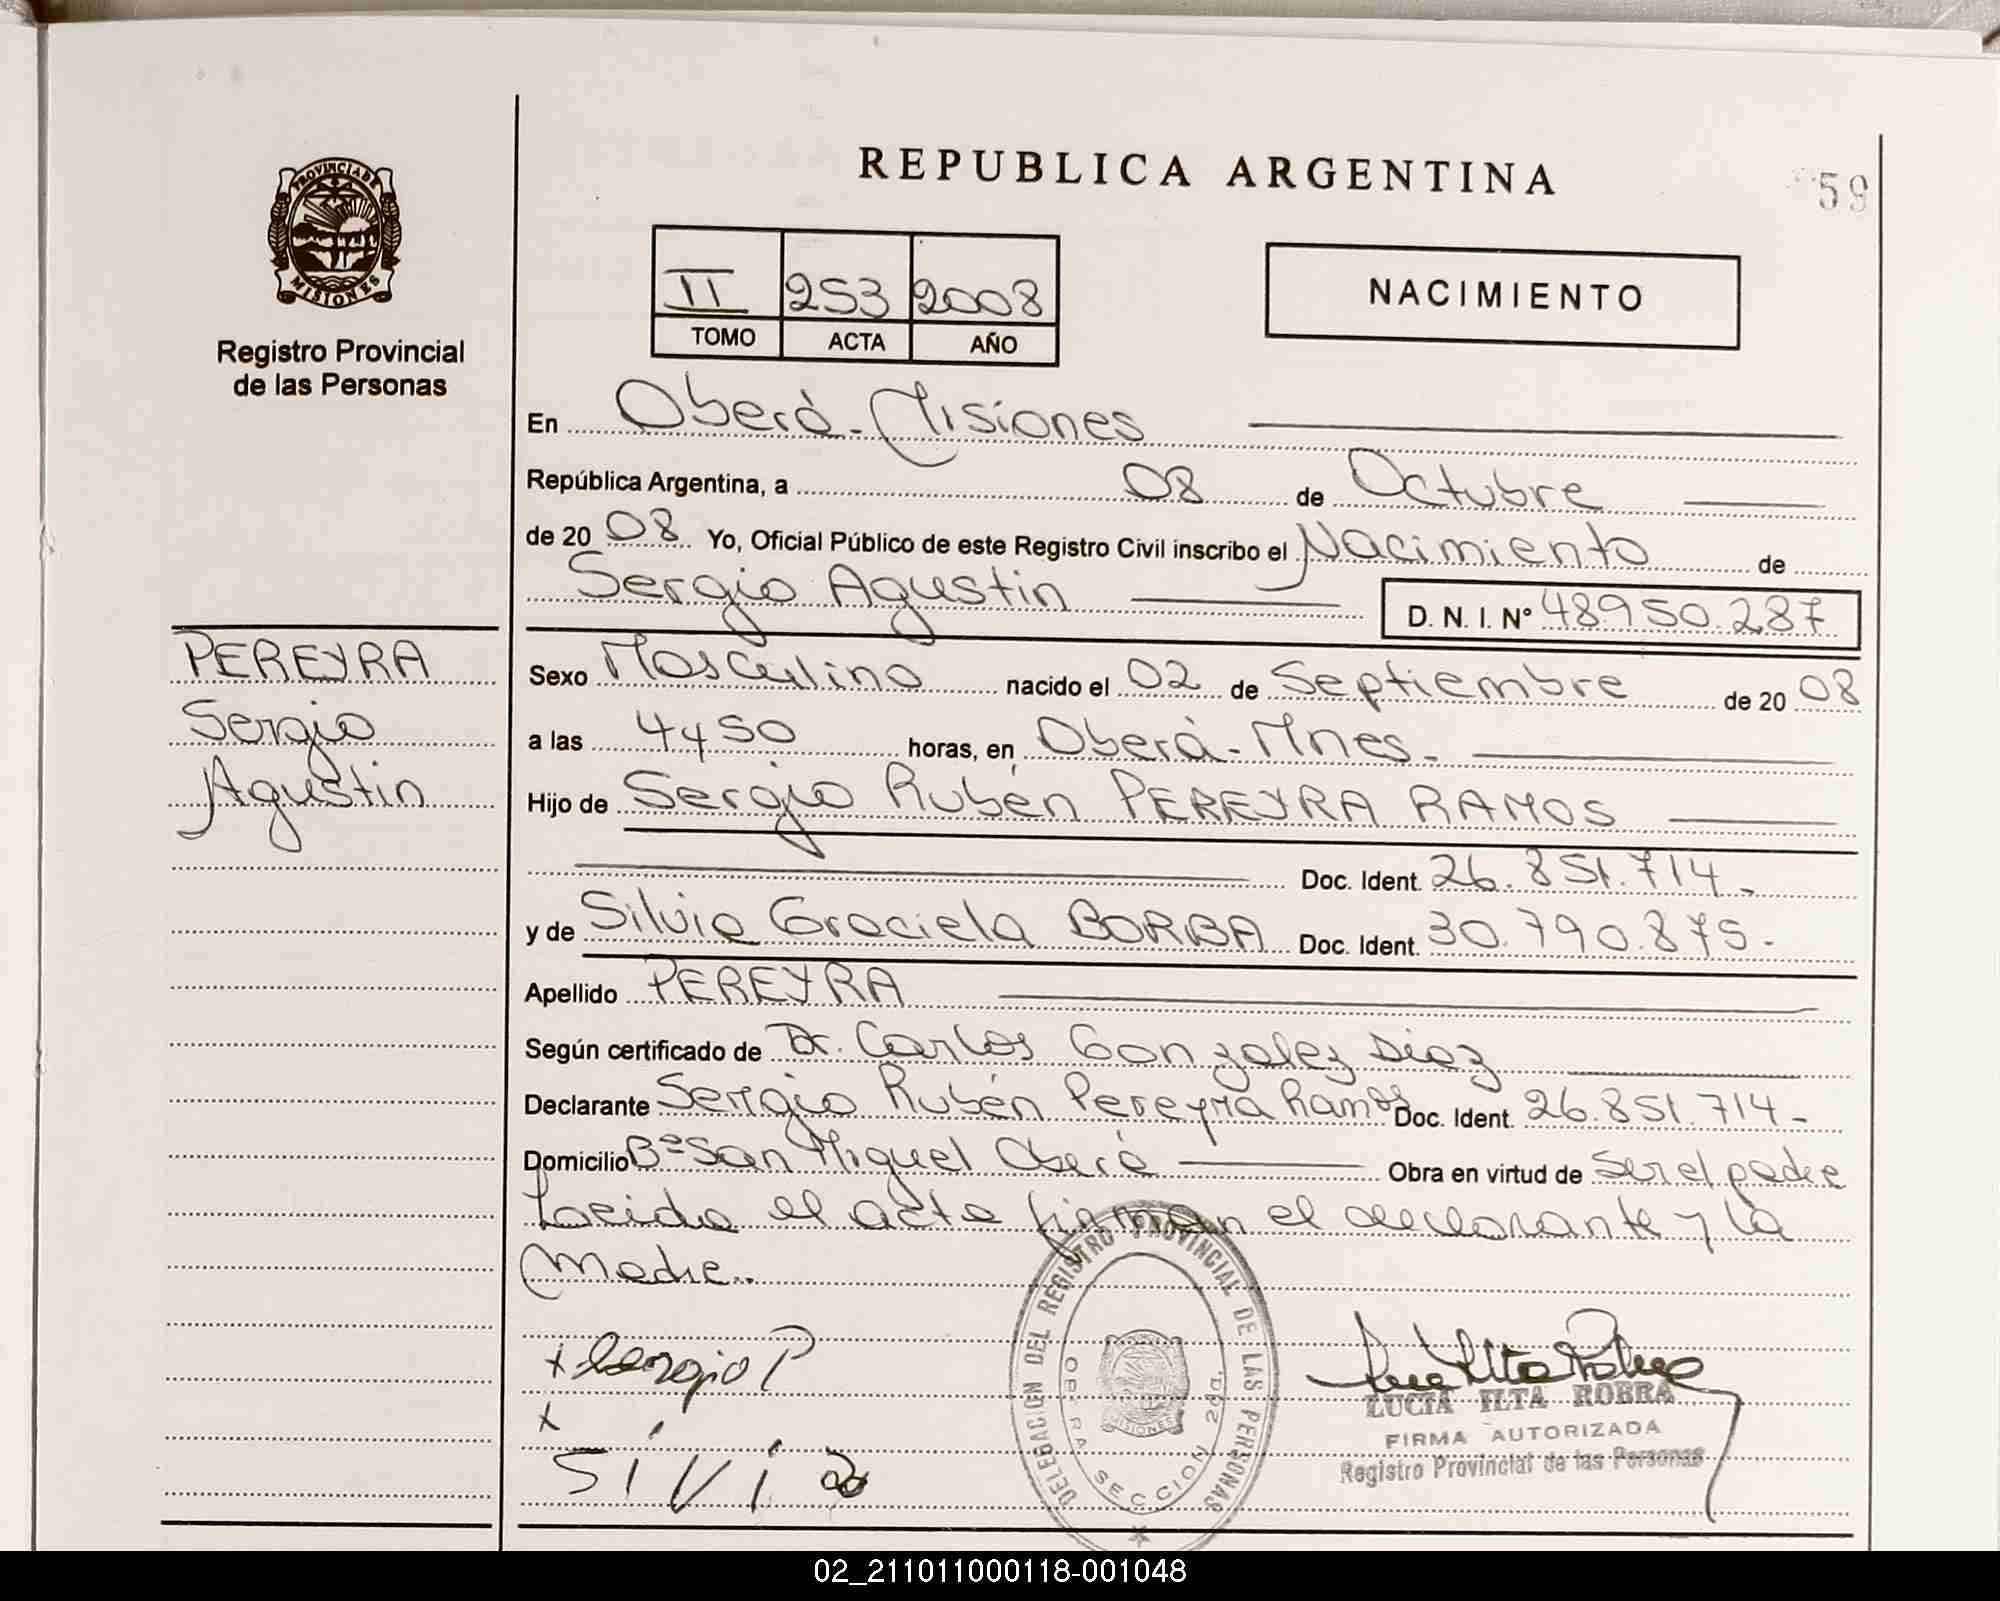 REPUBLICA ARGENTINA
59
PROVINCIA DE
MISIONES
Registro Provincial
de las Personas
II 253 2008
TOMO ACTA AÑO
NACIMIENTO
En Oberá - Misiones
República Argentina, a 08 de Octubre
de 20 08 Yo, Oficial Público de este Registro Civil inscribo el Nacimiento de
Sergio Agustin D. N. I. Nº 48950.287
PEREYRA
Sergio
Agustin
Sexo Masculino nacido el 02 de Septiembre de 20 08
a las 4y50 horas, en Oberá - Mnes.
Hijo de Sergio Rubén PEREYRA RAMOS
Doc. Ident. 26.851.714.
y de Silvia Graciela BORBA Doc. Ident. 30.790.875.
Apellido PEREYRA
Según certificado de Dr. Carlos Gonzalez Diaz
Declarante Sergio Rubén Pereyra Ramos Doc. Ident. 26.851.714-
Domicilio Bº San Miguel Oberá Obra en virtud de ser el padre
Laeida el acta firman el declarante y la
Madre.
x Sergio P
x
Sivia
DELEGACION DEL REGISTRO PROVINCIAL DE LAS PERSONAS
SECCION 2da.
MISIONES
LUCIA ILTA ROBRA
FIRMA AUTORIZADA
Registro Provincial de las Personas
02_211011000118-001048